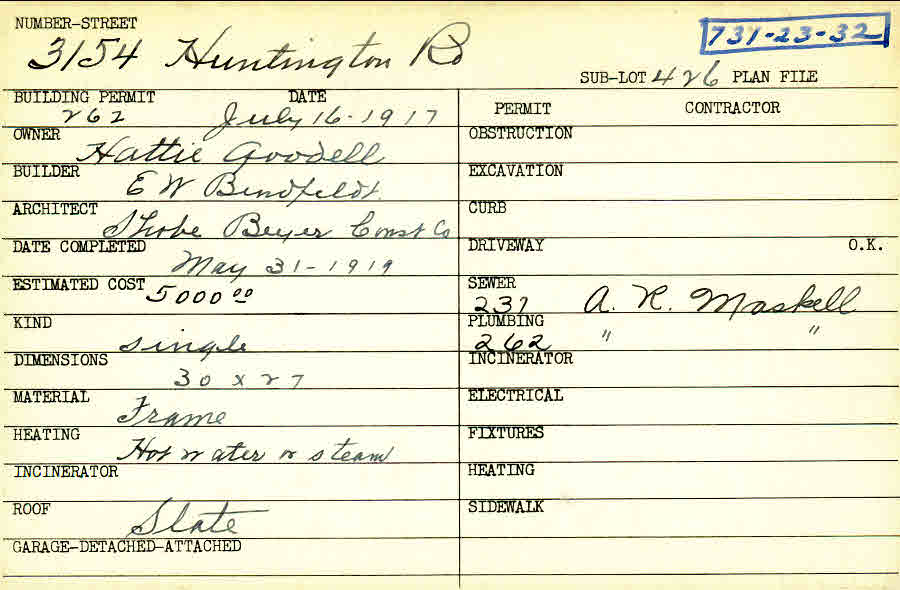 NUMBER-STREET
3154 Huntington Rd
731-23-32
SUB-LOT 426 PLAN FILE
BUILDING PERMIT DATE
262 July 16-1917
OWNER
Hattie Goodell
BUILDER
E W Bendfeldt.
ARCHITECT
Thobe Beyer Const Co
DATE COMPLETED
May 31-1919
ESTIMATED COST
5000 00
KIND
single
DIMENSIONS
30 x 27
MATERIAL
Frame
HEATING
Hot water or steam
INCINERATOR
ROOF
Slate
GARAGE-DETACHED-ATTACHED
PERMIT CONTRACTOR
OBSTRUCTION
EXCAVATION
CURB
DRIVEWAY O.K.
SEWER
237 A. R. Maskell
PLUMBING
262 " "
INCINERATOR
ELECTRICAL
FIXTURES
HEATING
SIDEWALK